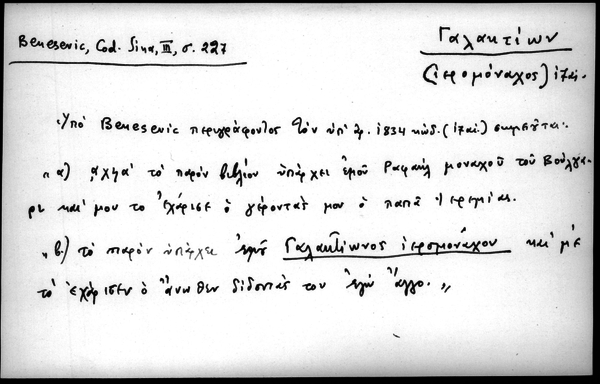 Benesevic, Cod. Sina, III, σ. 227
Γαλακτίων
(ἱερομόναχος) ιζαι.
Ὑπὸ Benesevic περιγράφοντος τὸν ὑπ' ἀρ. 1834 κώδ. (ιζαι.) σημειοῦται·
"α) ͵αχξα' τὸ παρὸν βιβλίον ὑπάρχει ἐμοῦ Ραφαὴλ μοναχοῦ τοῦ Βούλγα-
ρι καί μου το ἐχάρισε ὁ γέροντάς μου ὁ παπᾶ Ἰερεμίας.
"β) τὸ παρὸν ὑπάρχει ἐμοῦ Γαλακτίωνος ἱερομονάχου καὶ μὲ
τὸ ἐχάρισεν ὁ ἄνωθεν